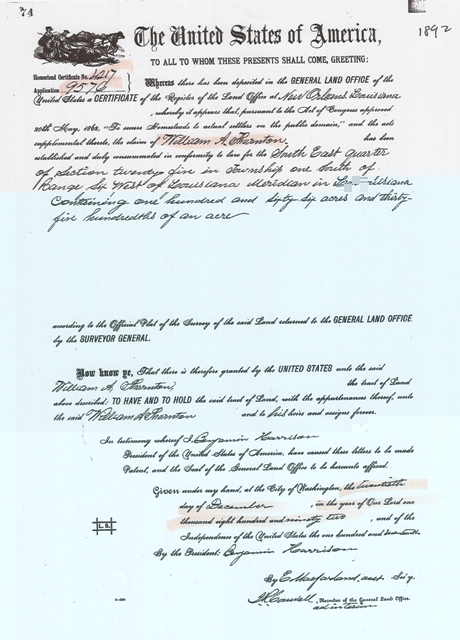 74
1892
The United States of America,
TO ALL TO WHOM THESE PRESENTS SHALL COME, GREETING:
Homestead Certificate No. 1217
Application 9576
Whereas there has been deposited in the GENERAL LAND OFFICE of the
United States a CERTIFICATE of the Register of the Land Office at New Orleans Louisiana
, whereby it appears that, pursuant to the Act of Congress approved
20th May, 1862, "To secure Homesteads to actual settlers on the public domain," and the acts
supplemental thereto, the claim of William A. Thornton has been
established and duly consummated in conformity to law for the South East quarter
of Section twenty five in Township one South of
Range Six West of Louisiana Meridian in Louisiana
Containing one hundred and sixty six acres and thirty-
five hundredths of an acre
according to the Official Plat of the Survey of the said Land returned to the GENERAL LAND OFFICE
by the SURVEYOR GENERAL.
Now know ye, That there is therefore granted by the UNITED STATES unto the said
William A. Thornton, the tract of Land
above described: TO HAVE AND TO HOLD the said tract of Land, with the appurtenances thereof, unto
the said William A Thornton and to his heirs and assigns forever.
In testimony whereof I, Benjamin Harrison
President of the United States of America, have caused these letters to be made
Patent, and the Seal of the General Land Office to be hereunto affixed.
Given under my hand, at the City of Washington, the twentieth
day of December, in the year of Our Lord one
thousand eight hundred and ninety two, and of the
Independence of the United States the one hundred and
L.S.
By the President: Benjamin Harrison
By E. Macfarland, asst Sec'y.
, Recorder of the General Land Office.
ad interim